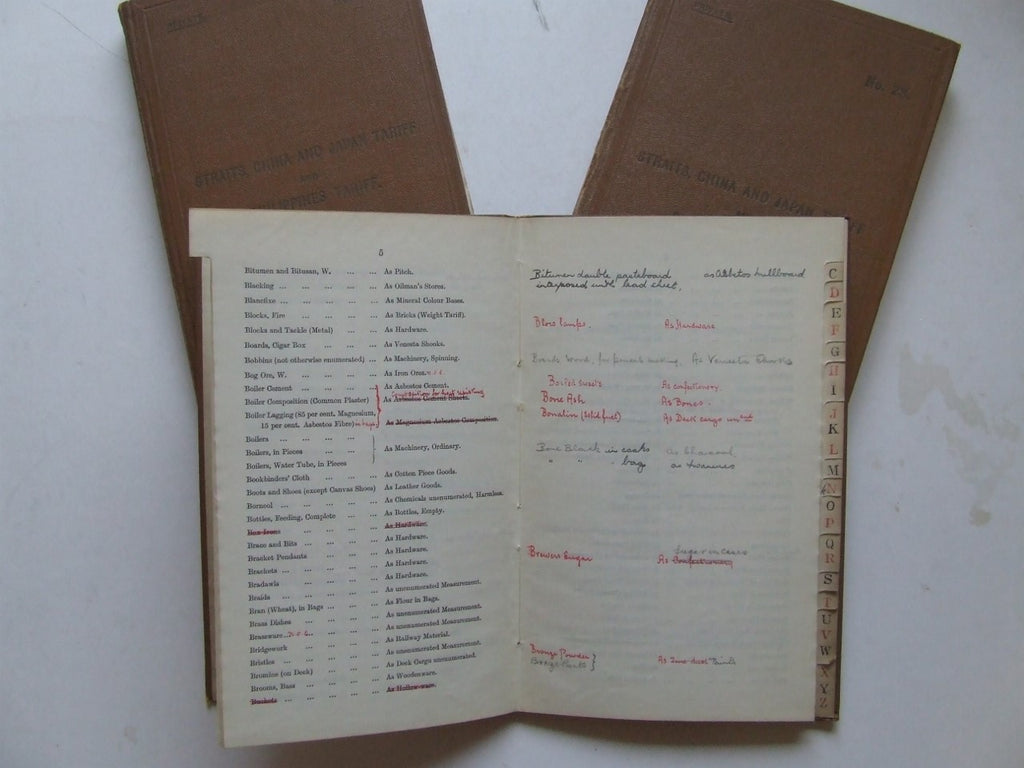 STRAITS, CHINA AND JAPAN TARIFF
AND
PHILIPPINES TARIFF.
No. 23.
STRAITS, CHINA AND JAPAN
5
Bitumen and Bitusan, W. ... ... As Pitch.
Blacking ... ... ... ... ... As Oilman's Stores.
Blancfixe ... ... ... ... As Mineral Colour Bases.
Blocks, Fire ... ... ... ... As Bricks (Weight Tariff).
Blocks and Tackle (Metal) ... ... As Hardware.
Boards, Cigar Box ... ... ... As Venesta Shooks.
Bobbins (not otherwise enumerated) ... As Machinery, Spinning.
Bog Ore, W. ... ... ... ... As Iron Ores.
Boiler Cement ... ... ... ... As Asbestos Cement.
Boiler Composition (Common Plaster) As Asbestos Cement Sheets.
Boiler Lagging (85 per cent. Magnesium,
15 per cent. Asbestos Fibre) in bags As Magnesium Asbestos Composition.
Boilers ... ... ... ...
Boilers, in Pieces ... ... ... As Machinery, Ordinary.
Boilers, Water Tube, in Pieces ...
Bookbinders' Cloth ... ... ... As Cotton Piece Goods.
Boots and Shoes (except Canvas Shoes) As Leather Goods.
Borneol ... ... ... ... As Chemicals unenumerated, Harmless.
Bottles, Feeding, Complete ... ... As Bottles, Empty.
Box Irons ... ... ... ... As Hardware.
Brace and Bits ... ... ... ... As Hardware.
Bracket Pendants ... ... ... As Hardware.
Brackets ... ... ... ... As Hardware.
Bradawls ... ... ... ... As Hardware.
Braids ... ... ... ... As unenumerated Measurement.
Bran (Wheat), in Bags ... ... ... As Flour in Bags.
Brass Dishes ... ... ... ... As unenumerated Measurement.
Brassware ... ... ... As unenumerated Measurement.
Bridgework ... ... ... ... As Railway Material.
Bristles ... ... ... ... As unenumerated Measurement.
Bromine (on Deck) ... ... ... As Deck Cargo unenumerated.
Brooms, Bass ... ... ... ... As Woodenware.
Buckets ... ... ... ... As Hollow-ware.
Bitumen double pasteboard as Asbestos millboard
interposed with lead sheet.
Blow lamps. As Hardware
Boards Wood, for pencil making, As Venesta Shooks
Boiled sweets As confectionery.
Bone Ash As Bones.
Bonalin (Solid fuel) As Deck cargo
Bone Black in casks as charcoal
" " " bags as
Sugar in cases
Brewers Sugar As Confectionery
Bronze Powder
Bronze Paints As Paints
C
D
E
F
G
H
I
J
K
L
M
N
O
P
Q
R
S
T
U
V
W
X
Y
Z